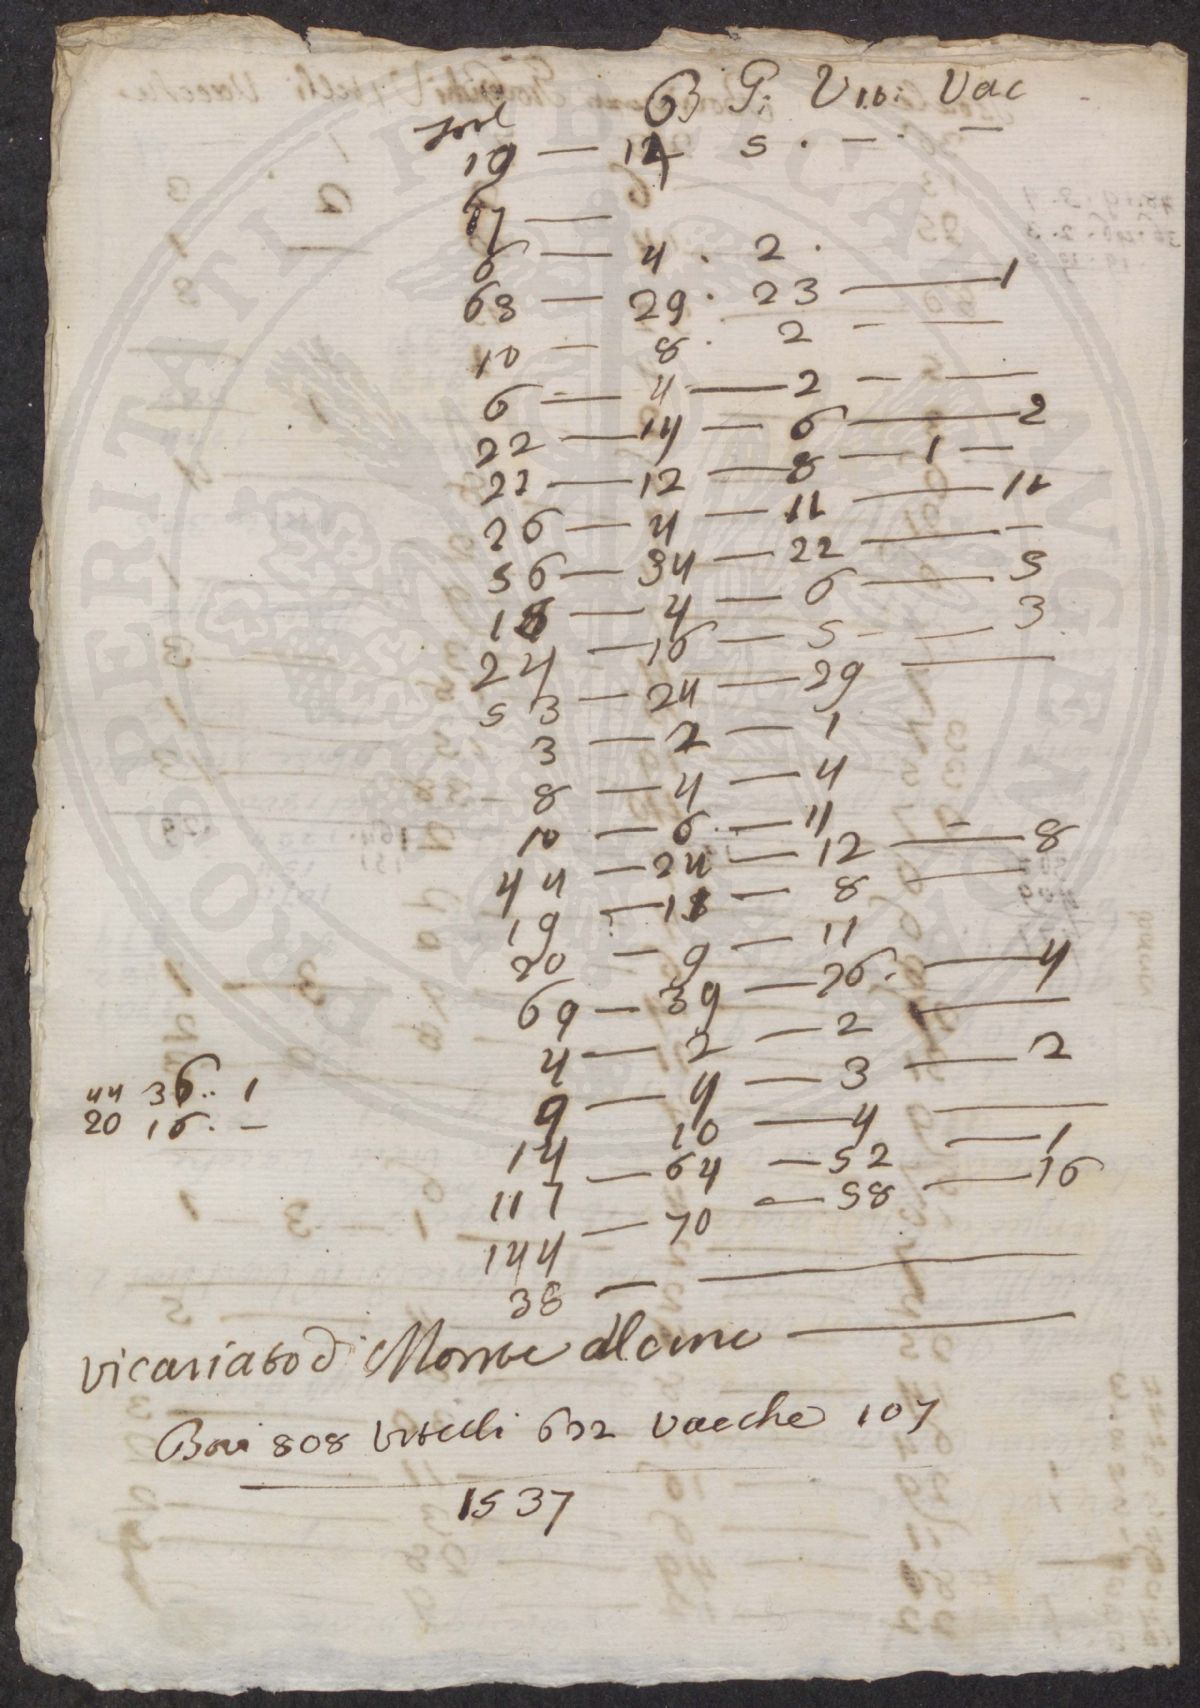 B G: Vit: Vac
19 — 14 5 . — . —
67 —
6 — 4 . 2 .
68 — 29 . 23 — 1
10 — 8 . 2 — —
6 — 4 — 2 — —
22 — 14 — 6 — 2
22 — 12 — 8 — 1 —
26 — 4 — 11 — 11
56 — 34 — 22 — —
18 — 4 — 6 — 5
24 — 16 — 5 — — 3
53 — 24 — 29 —
3 — 2 — 1
8 — 4 — 4
10 — 6 — 11 —
44 — 24 — 12 — 8
19 — 11 — 8 —
20 — 9 — 11
69 — 39 — 26 . — 4
4 — 2 — 2 —
9 — 4 — 3 — 2
14 10 — 4 —
117 — 64 — 52 — 1
144 — 70 — 58 — 16
38 — —
44 36 .. 1
20 16 . —
vicariato di Monte Alcino —
Bovi 808 vitelli 622 vacche 107
1537
PROSPERITATI PUBLICAE AUGENDAE